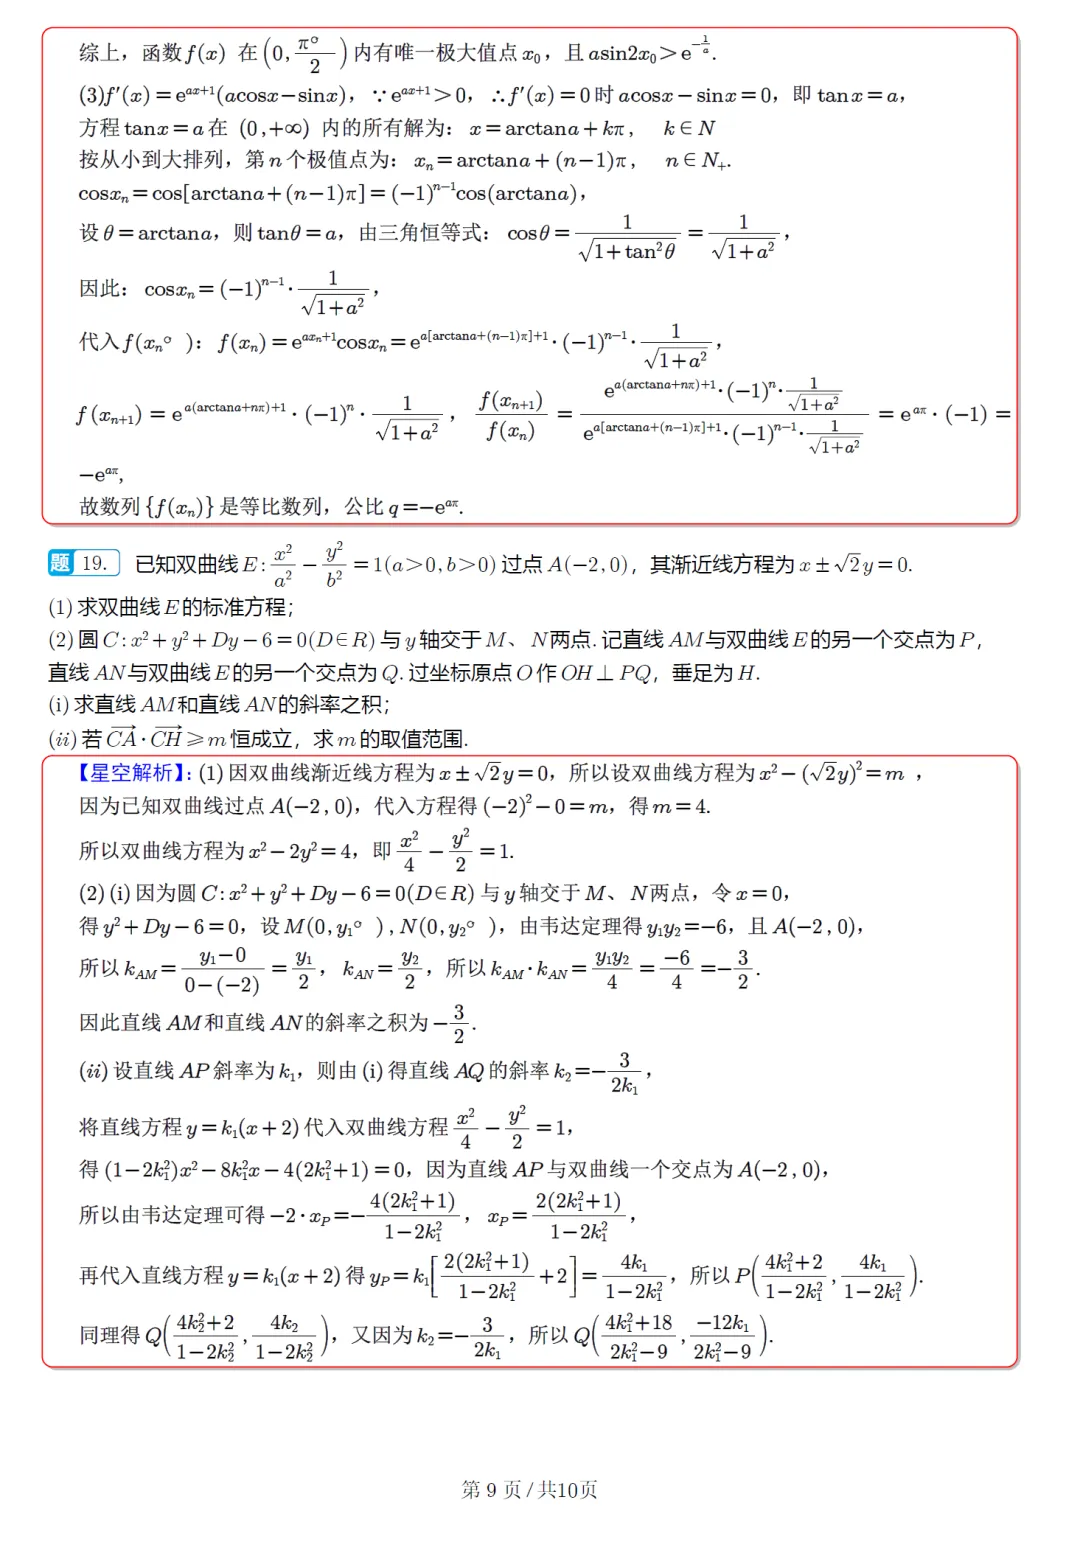 综上，函数 f(x) 在 (0, π°/2) 内有唯一极大值点 x₀，且 asin2x₀ > e^{-1/a}.
(3) f′(x) = e^{ax+1}(acosx − sinx)，∵ e^{ax+1} > 0，∴ f′(x) = 0 时 acosx − sinx = 0，即 tanx = a，
方程 tanx = a 在 (0, +∞) 内的所有解为：x = arctana + kπ， k ∈ N
按从小到大排列，第 n 个极值点为：xₙ = arctana + (n−1)π， n ∈ N₊.
cosxₙ = cos[arctana + (n−1)π] = (−1)^{n−1}cos(arctana)，
设 θ = arctana，则 tanθ = a，由三角恒等式：cosθ = 1/√(1+tan²θ) = 1/√(1+a²)，
因此：cosxₙ = (−1)^{n−1} · 1/√(1+a²)，
代入 f(xₙ° )：f(xₙ) = e^{axₙ+1}cosxₙ = e^{a[arctana+(n−1)π]+1} · (−1)^{n−1} · 1/√(1+a²)，
f(xₙ₊₁) = e^{a(arctana+nπ)+1} · (−1)ⁿ · 1/√(1+a²)， f(xₙ₊₁)/f(xₙ) = [e^{a(arctana+nπ)+1} · (−1)ⁿ · 1/√(1+a²)]/[e^{a[arctana+(n−1)π]+1} · (−1)^{n−1} · 1/√(1+a²)] = e^{aπ} · (−1) =
−e^{aπ}，
故数列 {f(xₙ)} 是等比数列，公比 q = −e^{aπ}.
题 19. 已知双曲线 E: x²/a² − y²/b² = 1(a>0, b>0) 过点 A(−2, 0)，其渐近线方程为 x ± √2y = 0.
(1) 求双曲线 E 的标准方程；
(2) 圆 C: x² + y² + Dy − 6 = 0(D∈R) 与 y 轴交于 M、N 两点. 记直线 AM 与双曲线 E 的另一个交点为 P，
直线 AN 与双曲线 E 的另一个交点为 Q. 过坐标原点 O 作 OH ⊥ PQ，垂足为 H.
(i) 求直线 AM 和直线 AN 的斜率之积；
(ii) 若 →CA · →CH ⩾ m 恒成立，求 m 的取值范围.
【星空解析】：(1) 因双曲线渐近线方程为 x ± √2y = 0，所以设双曲线方程为 x² − (√2y)² = m ，
因为已知双曲线过点 A(−2, 0)，代入方程得 (−2)² − 0 = m，得 m = 4.
所以双曲线方程为 x² − 2y² = 4，即 x²/4 − y²/2 = 1.
(2) (i) 因为圆 C: x² + y² + Dy − 6 = 0(D∈R) 与 y 轴交于 M、N 两点，令 x = 0，
得 y² + Dy − 6 = 0，设 M(0, y₁° ), N(0, y₂° )，由韦达定理得 y₁y₂ = −6，且 A(−2, 0)，
所以 k_{AM} = (y₁−0)/(0−(−2)) = y₁/2，k_{AN} = y₂/2，所以 k_{AM} · k_{AN} = y₁y₂/4 = −6/4 = −3/2.
因此直线 AM 和直线 AN 的斜率之积为 −3/2.
(ii) 设直线 AP 斜率为 k₁，则由 (i) 得直线 AQ 的斜率 k₂ = −3/(2k₁)，
将直线方程 y = k₁(x + 2) 代入双曲线方程 x²/4 − y²/2 = 1，
得 (1−2k₁²)x² − 8k₁²x − 4(2k₁²+1) = 0，因为直线 AP 与双曲线一个交点为 A(−2, 0)，
所以由韦达定理可得 −2 · x_P = −4(2k₁²+1)/(1−2k₁²)，x_P = 2(2k₁²+1)/(1−2k₁²)，
再代入直线方程 y = k₁(x + 2) 得 y_P = k₁[2(2k₁²+1)/(1−2k₁²) + 2] = 4k₁/(1−2k₁²)，所以 P((4k₁²+2)/(1−2k₁²), 4k₁/(1−2k₁²)).
同理得 Q((4k₂²+2)/(1−2k₂²), 4k₂/(1−2k₂²))，又因为 k₂ = −3/(2k₁)，所以 Q((4k₁²+18)/(2k₁²−9), −12k₁/(2k₁²−9)).
第 9 页 / 共10页